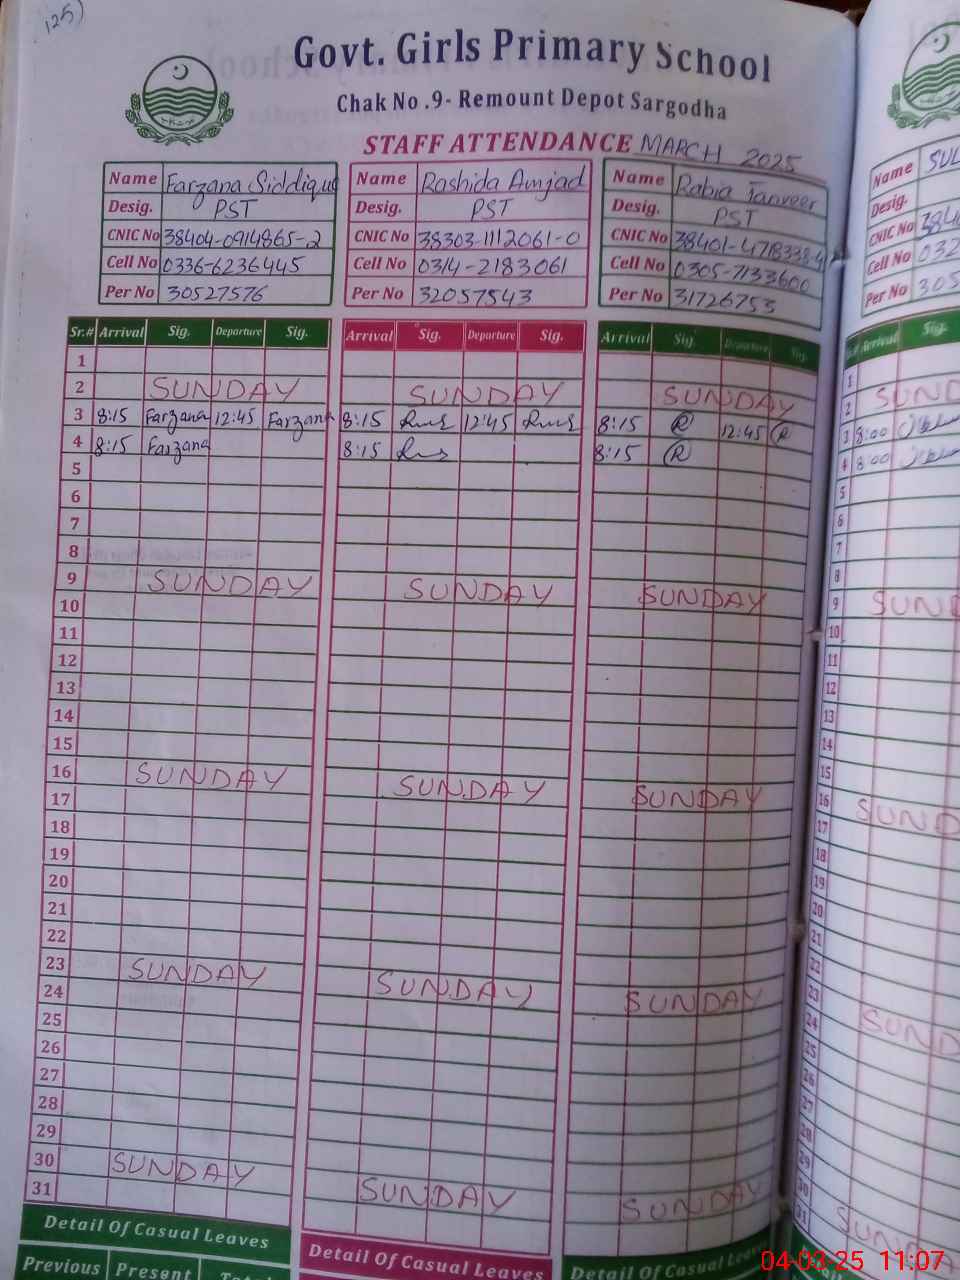 125)
Govt. Girls Primary School
Chak No .9- Remount Depot Sargodha
STAFF ATTENDANCE MARCH 2025
Name Farzana Siddique Name Rashida Amjad Name Rabia Tanveer Name SUL
Desig. PST Desig. PST Desig. PST Desig.
CNIC No 38404-0914865-2 CNIC No 38303-1112061-0 CNIC No 38401-4718338-4 CNIC No 3840
Cell No 0336-6236445 Cell No 0314-2183061 Cell No 0305-7133600 Cell No 032
Per No 30527576 Per No 32057543 Per No 31726753 Per No 305
Sr.# Arrival Sig. Departure Sig. Arrival Sig. Departure Sig. Arrival Sig. Departure Sig. Arrival Sig.
1 1
2 SUNDAY SUNDAY SUNDAY 2 SUND
3 8:15 Farzana 12:45 Farzana 8:15 12:45 8:15 R 12:45 R 3 8:00
4 8:15 Farzana 8:15 8:15 R 4 8:00
5 5
6 6
7 7
8 8
9 SUNDAY SUNDAY SUNDAY 9 SUND
10 10
11 11
12 12
13 13
14 14
15 15
16 SUNDAY SUNDAY SUNDAY 16 SUND
17 17
18 18
19 19
20 20
21 21
22 22
23 SUNDAY SUNDAY SUNDAY 23 SUND
24 24
25 25
26 26
27 27
28 28
29 29
30 SUNDAY SUNDAY SUNDAY 30 SUNDA
31 31
Detail Of Casual Leaves Detail Of Casual Leaves Detail Of Casual Leaves
Previous Present Total
04-03-25 11:07